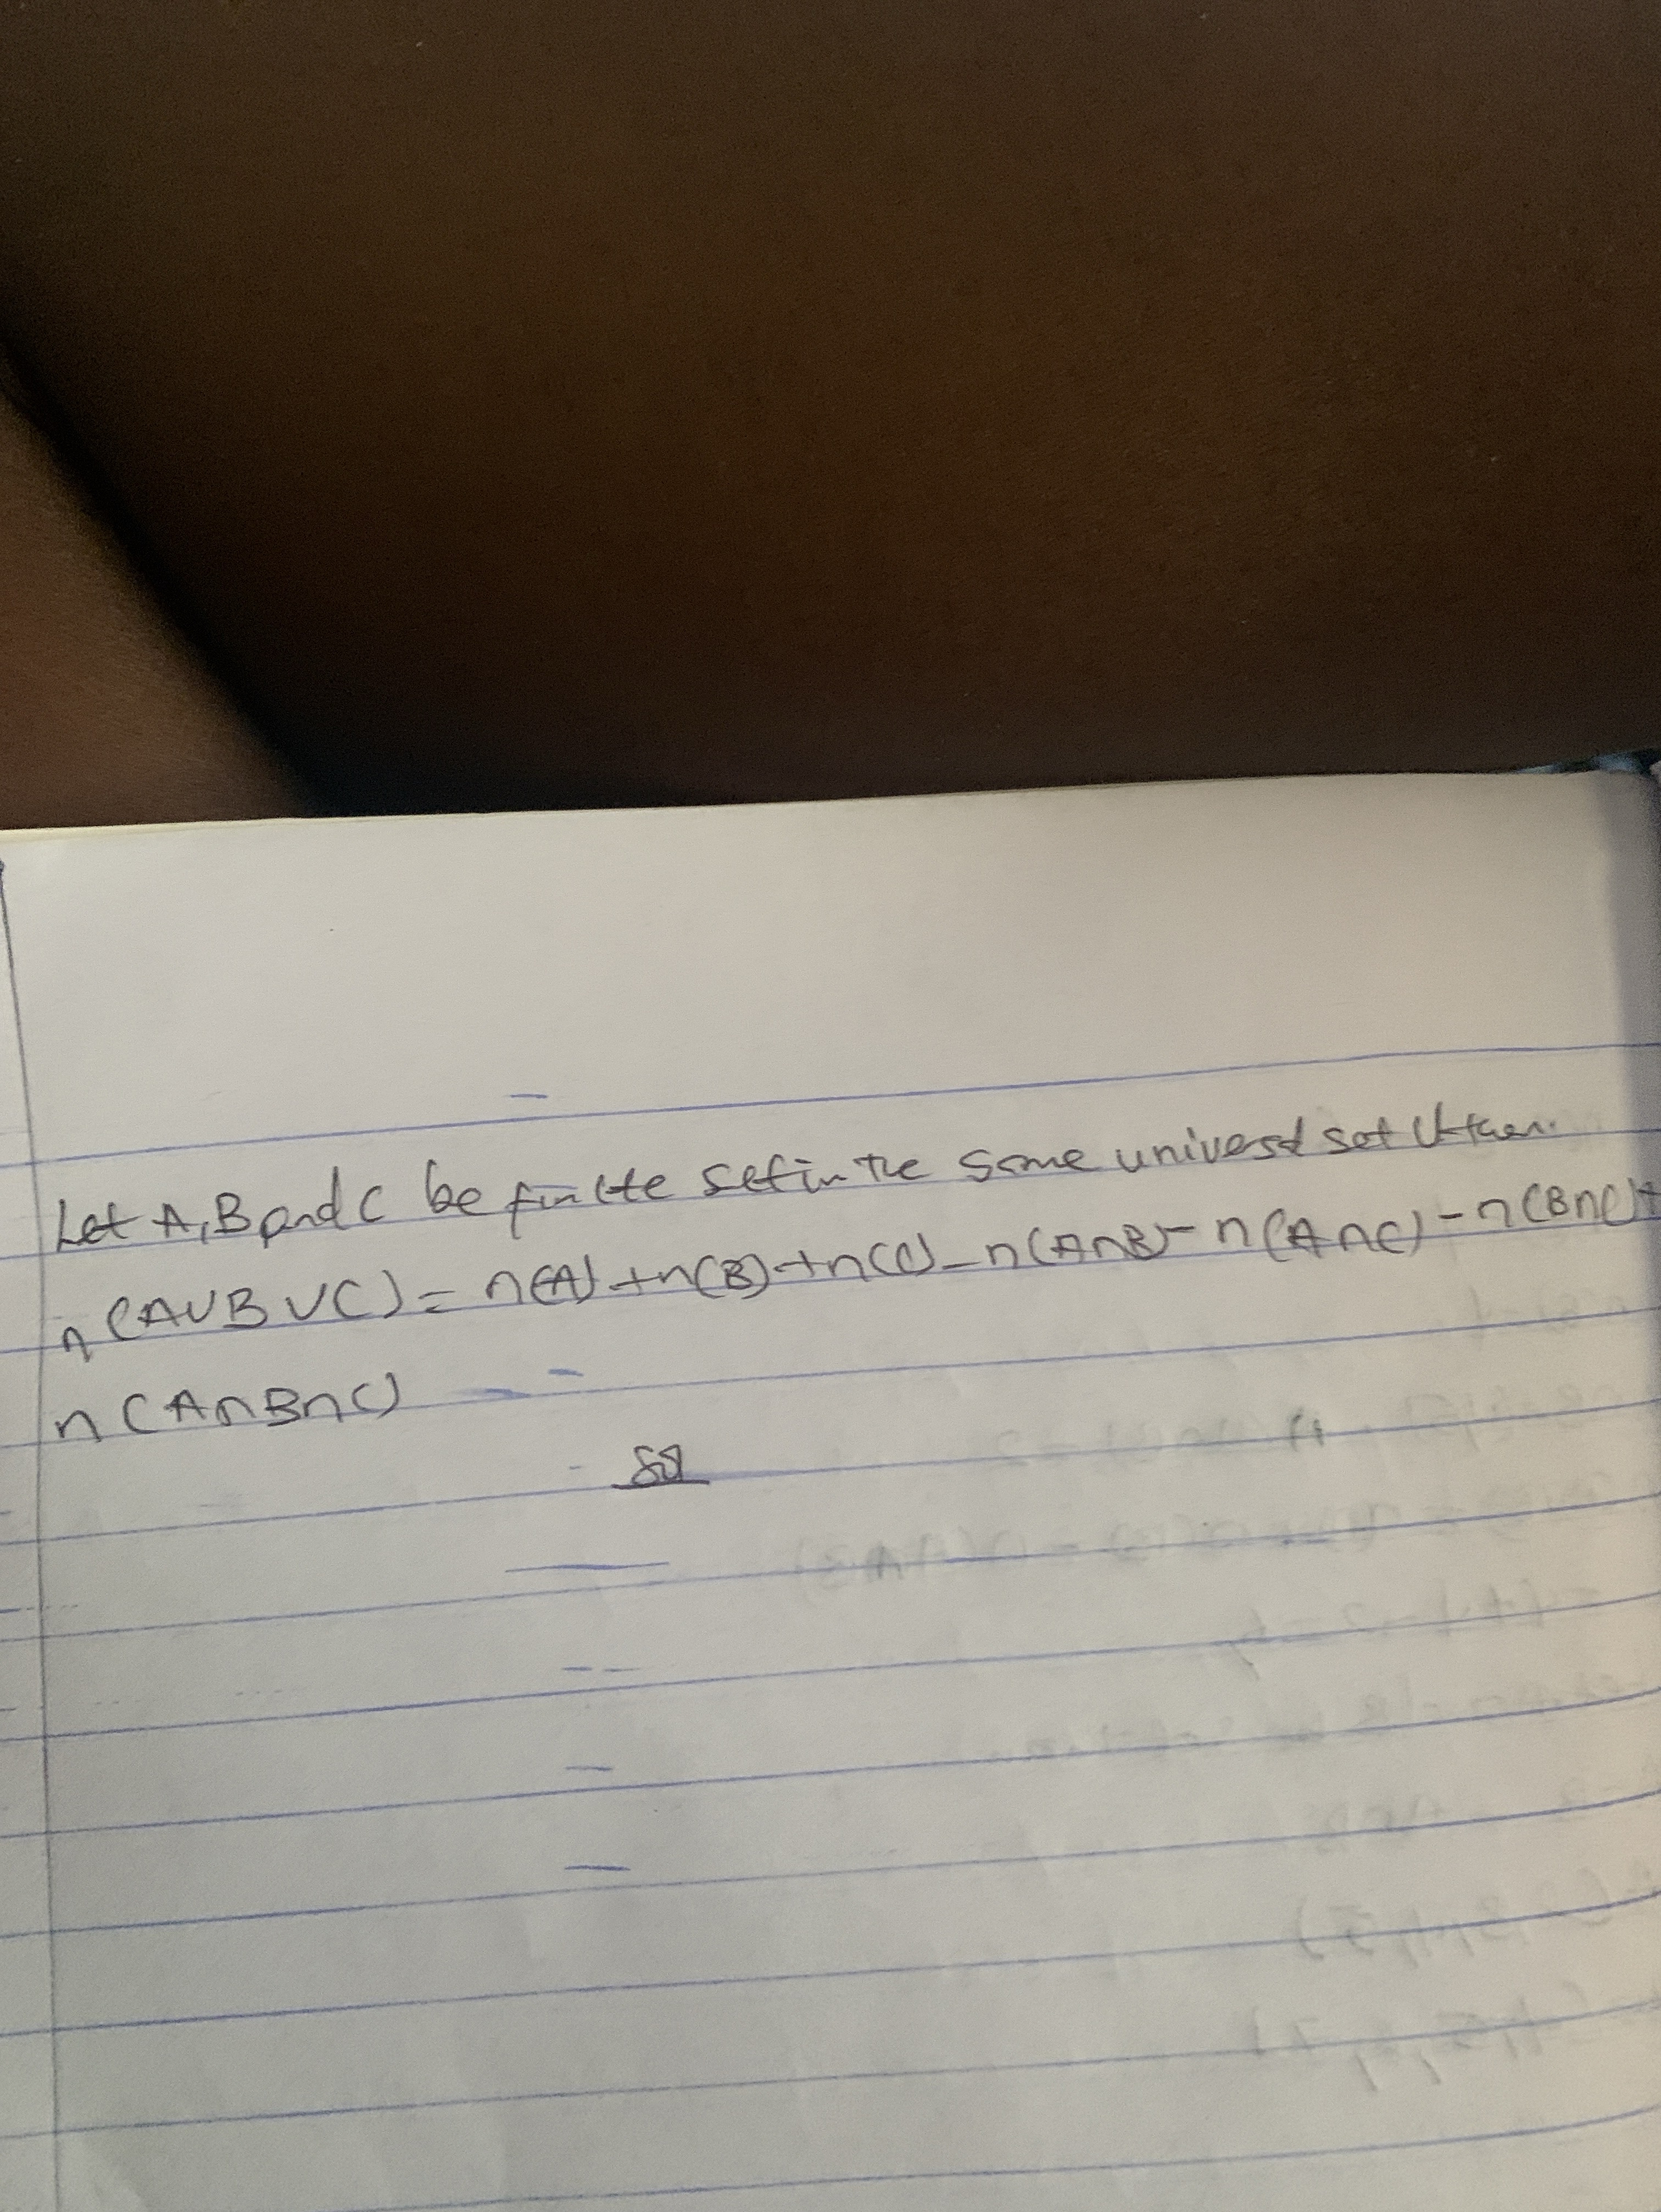 Let A, B and C be finite set in the same universal set U then.
n(A∪B∪C) = n(A) + n(B) + n(C) - n(A∩B) - n(A∩C) - n(B∩C) +
n(A∩B∩C)